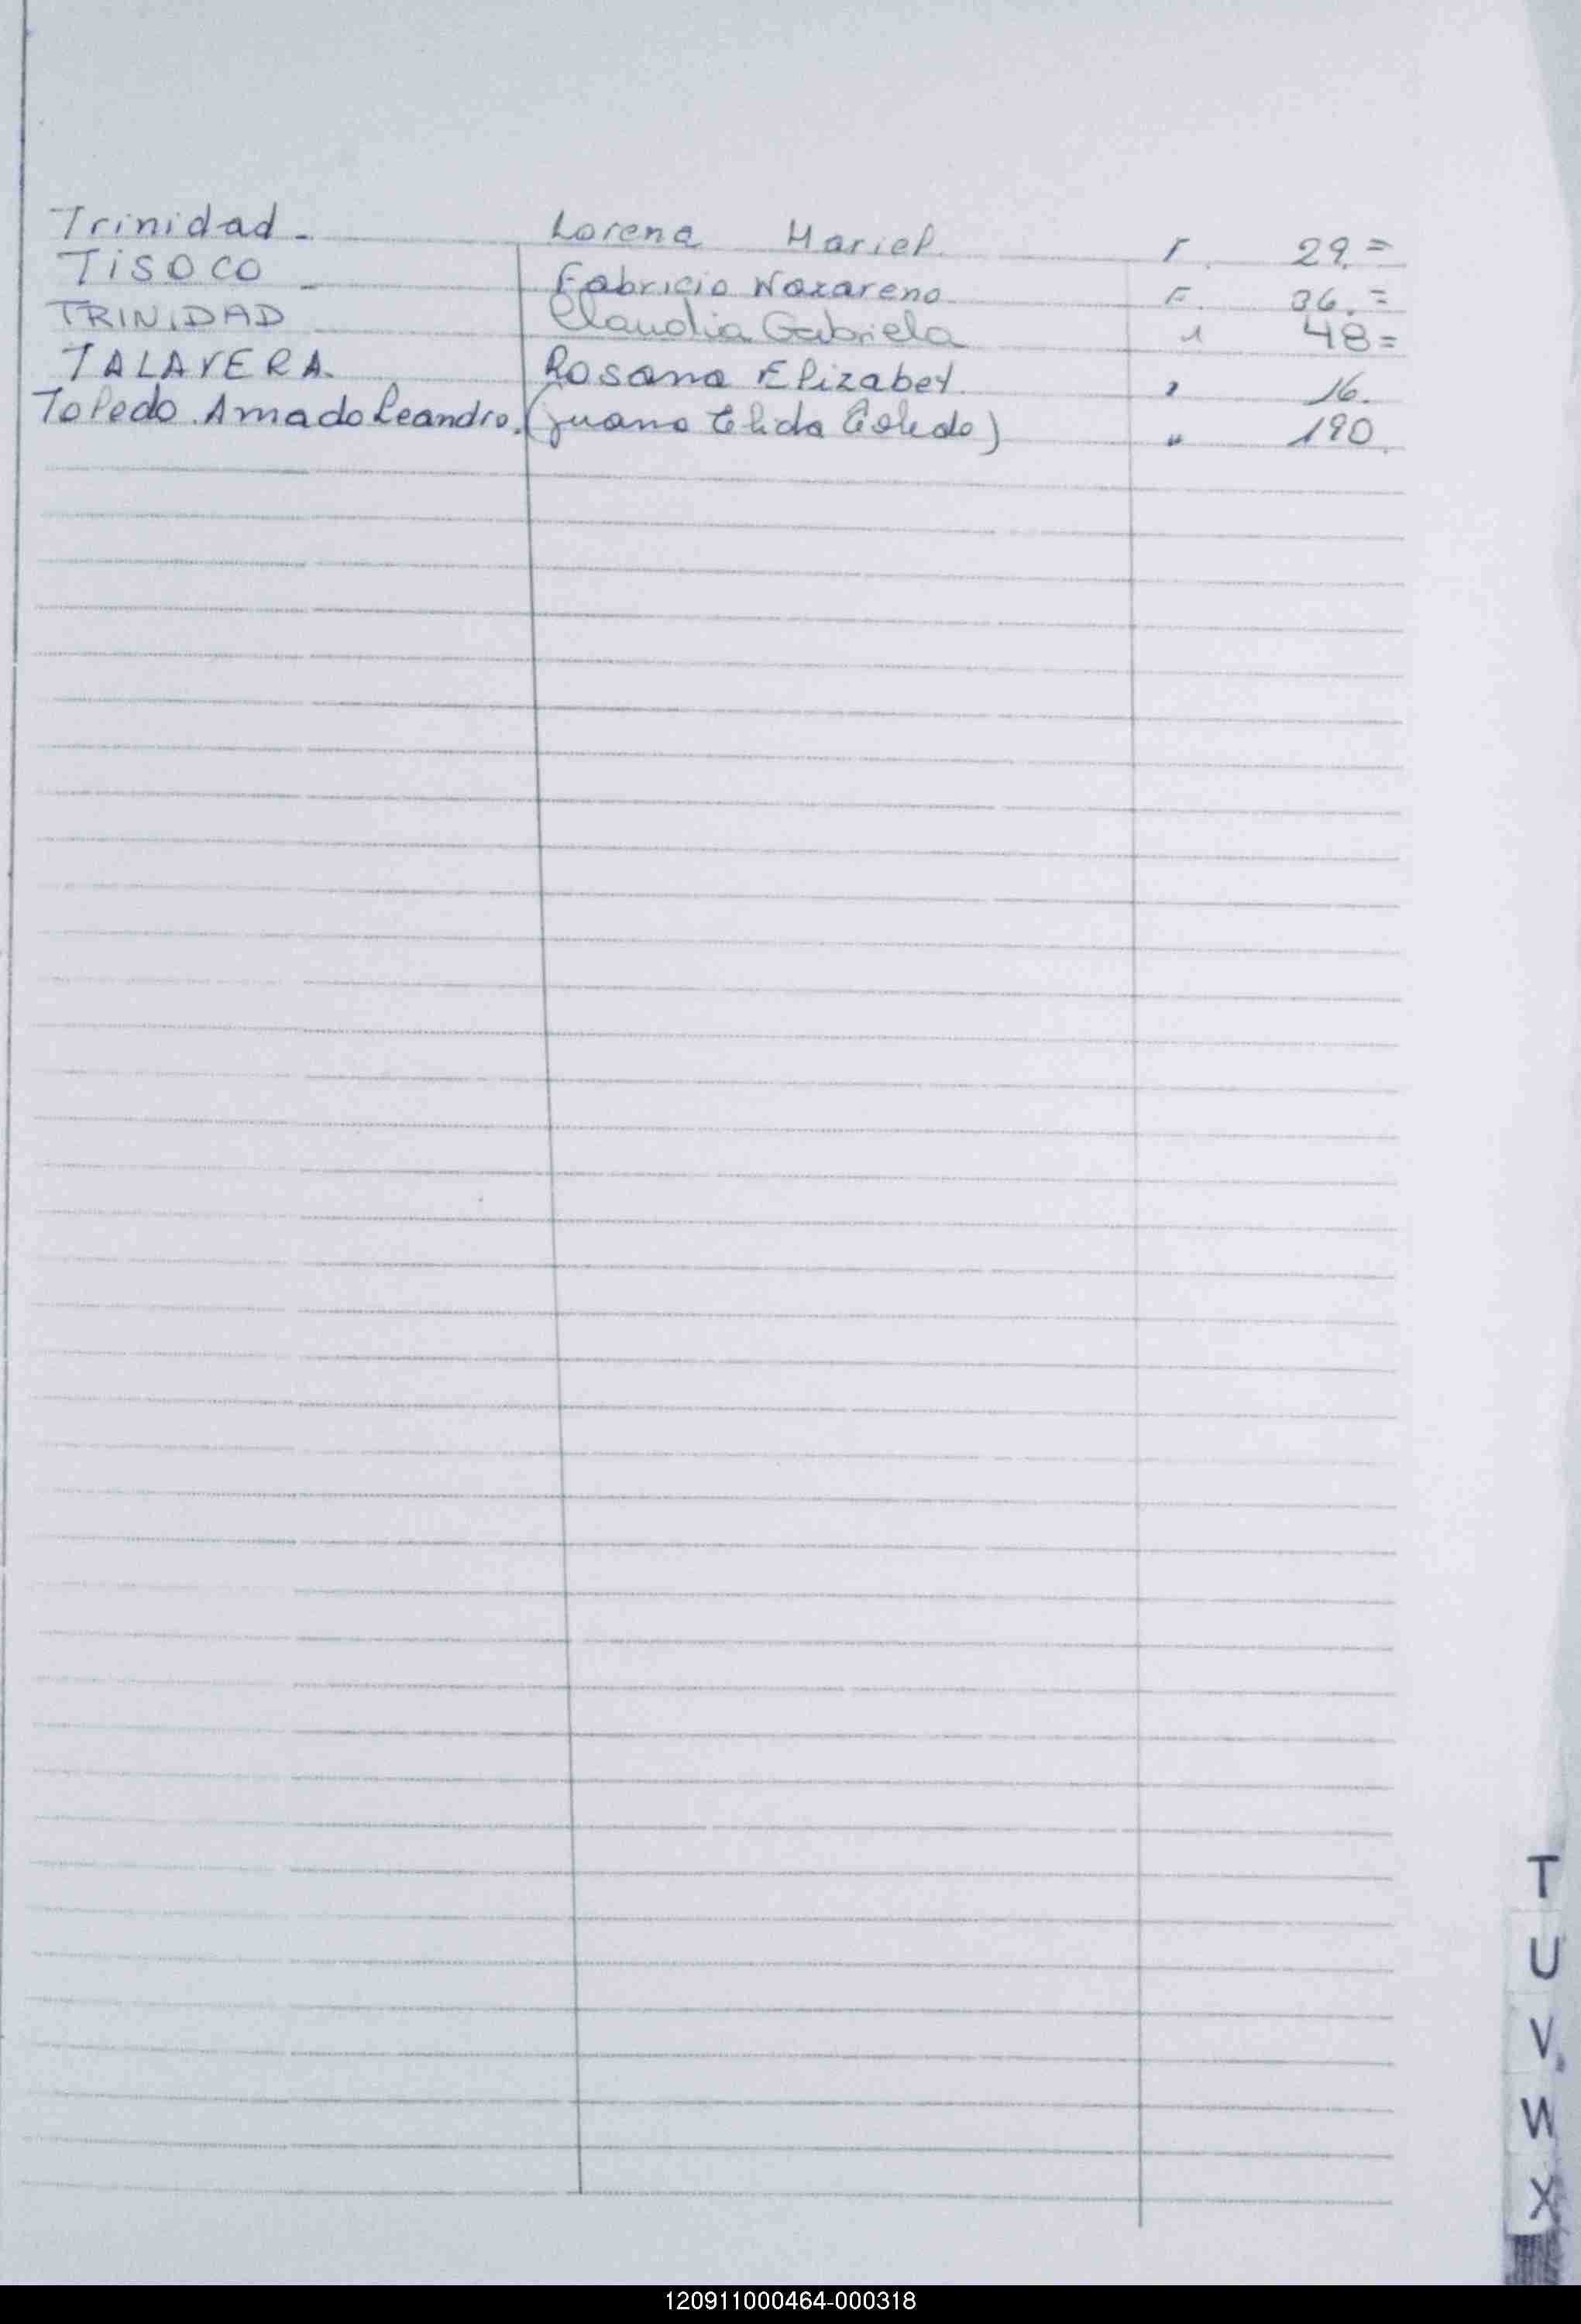 Trinidad - Lorena Mariel F. 29.=
TiSOCO - Fabricio Nazareno F. 36.=
TRINIDAD Claudia Gabriela " 48=
TALAVERA. Rosana Elizabet. " 16.
Toledo. Amado Leandro. (Juana Elida Toledo) " 190.
T
U
V
W
X
120911000464-000318